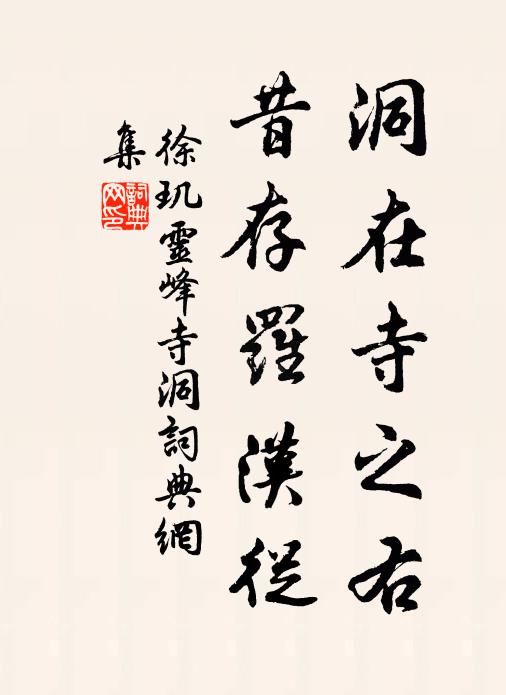 洞在寺之右
昔存羅漢從
徐玑靈峰寺洞詞典網
集
詞典
网印